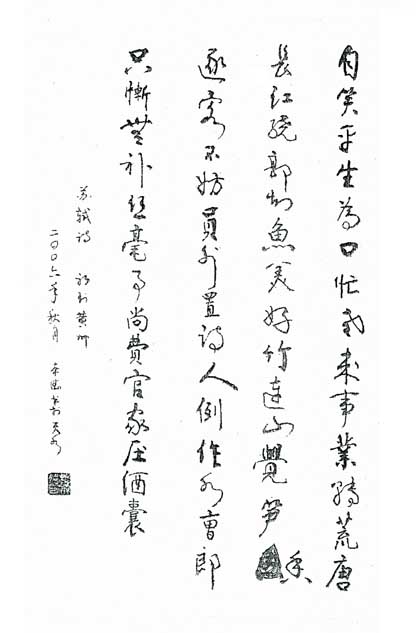 自笑平生為口忙老來事業轉荒唐
長江繞郭知魚美好竹連山覺笋香
逐客不妨員外置詩人例作水曹郎
只慚無补丝毫事尚費官家压酒囊
苏轼诗 初到黄州
二〇〇六年秋月